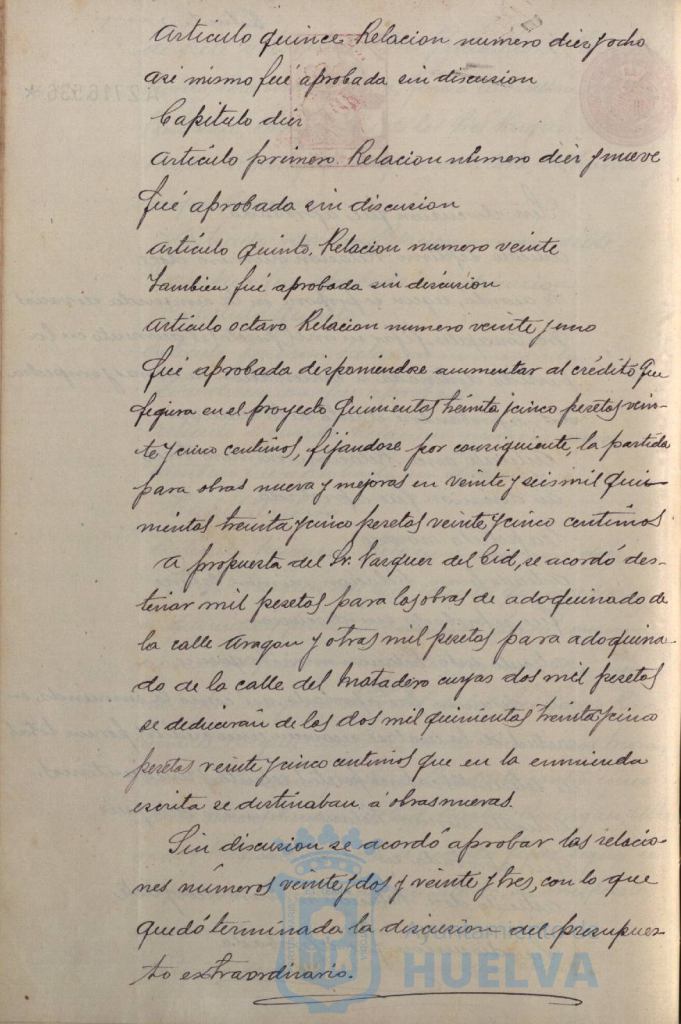 Articulo quince Relacion numero diez y ocho
asi mismo fué aprobada sin discusion
Capitulo diez
Articulo primero. Relacion número diez y nueve
fué aprobada sin discusion
Articulo quinto. Relacion numero veinte
tambien fué aprobada sin discusion
Articulo octavo Relacion numero veinte y uno
fué aprobada disponiéndose aumentar al crédito que
figura en el proyecto quinientas treinta y cinco pesetas vein-
te y cinco centimos, fijándose por consiguiente, la partida
para obras nueva y mejoras en veinte y seis mil qui-
nientas treinta y cinco pesetas veinte y cinco centimos
A propuesta del Sr. Vazquez del Cid, se acordó des-
tinar mil pesetas para las obras de adoquinado de
la calle Aragon y otras mil pesetas para adoquina-
do de la calle del Matadero cuyas dos mil pesetas
se deducirán de las dos mil quinientas treinta y cinco
pesetas veinte y cinco centimos que en la enmienda
escrita se destinaban á obras nuevas.
Sin discusion se acordó aprobar las relacio-
nes números veinte y dos y veinte y tres, con lo que
quedó terminada la discusion del presupues-
to extraordinario.
Ayuntamiento de
HUELVA